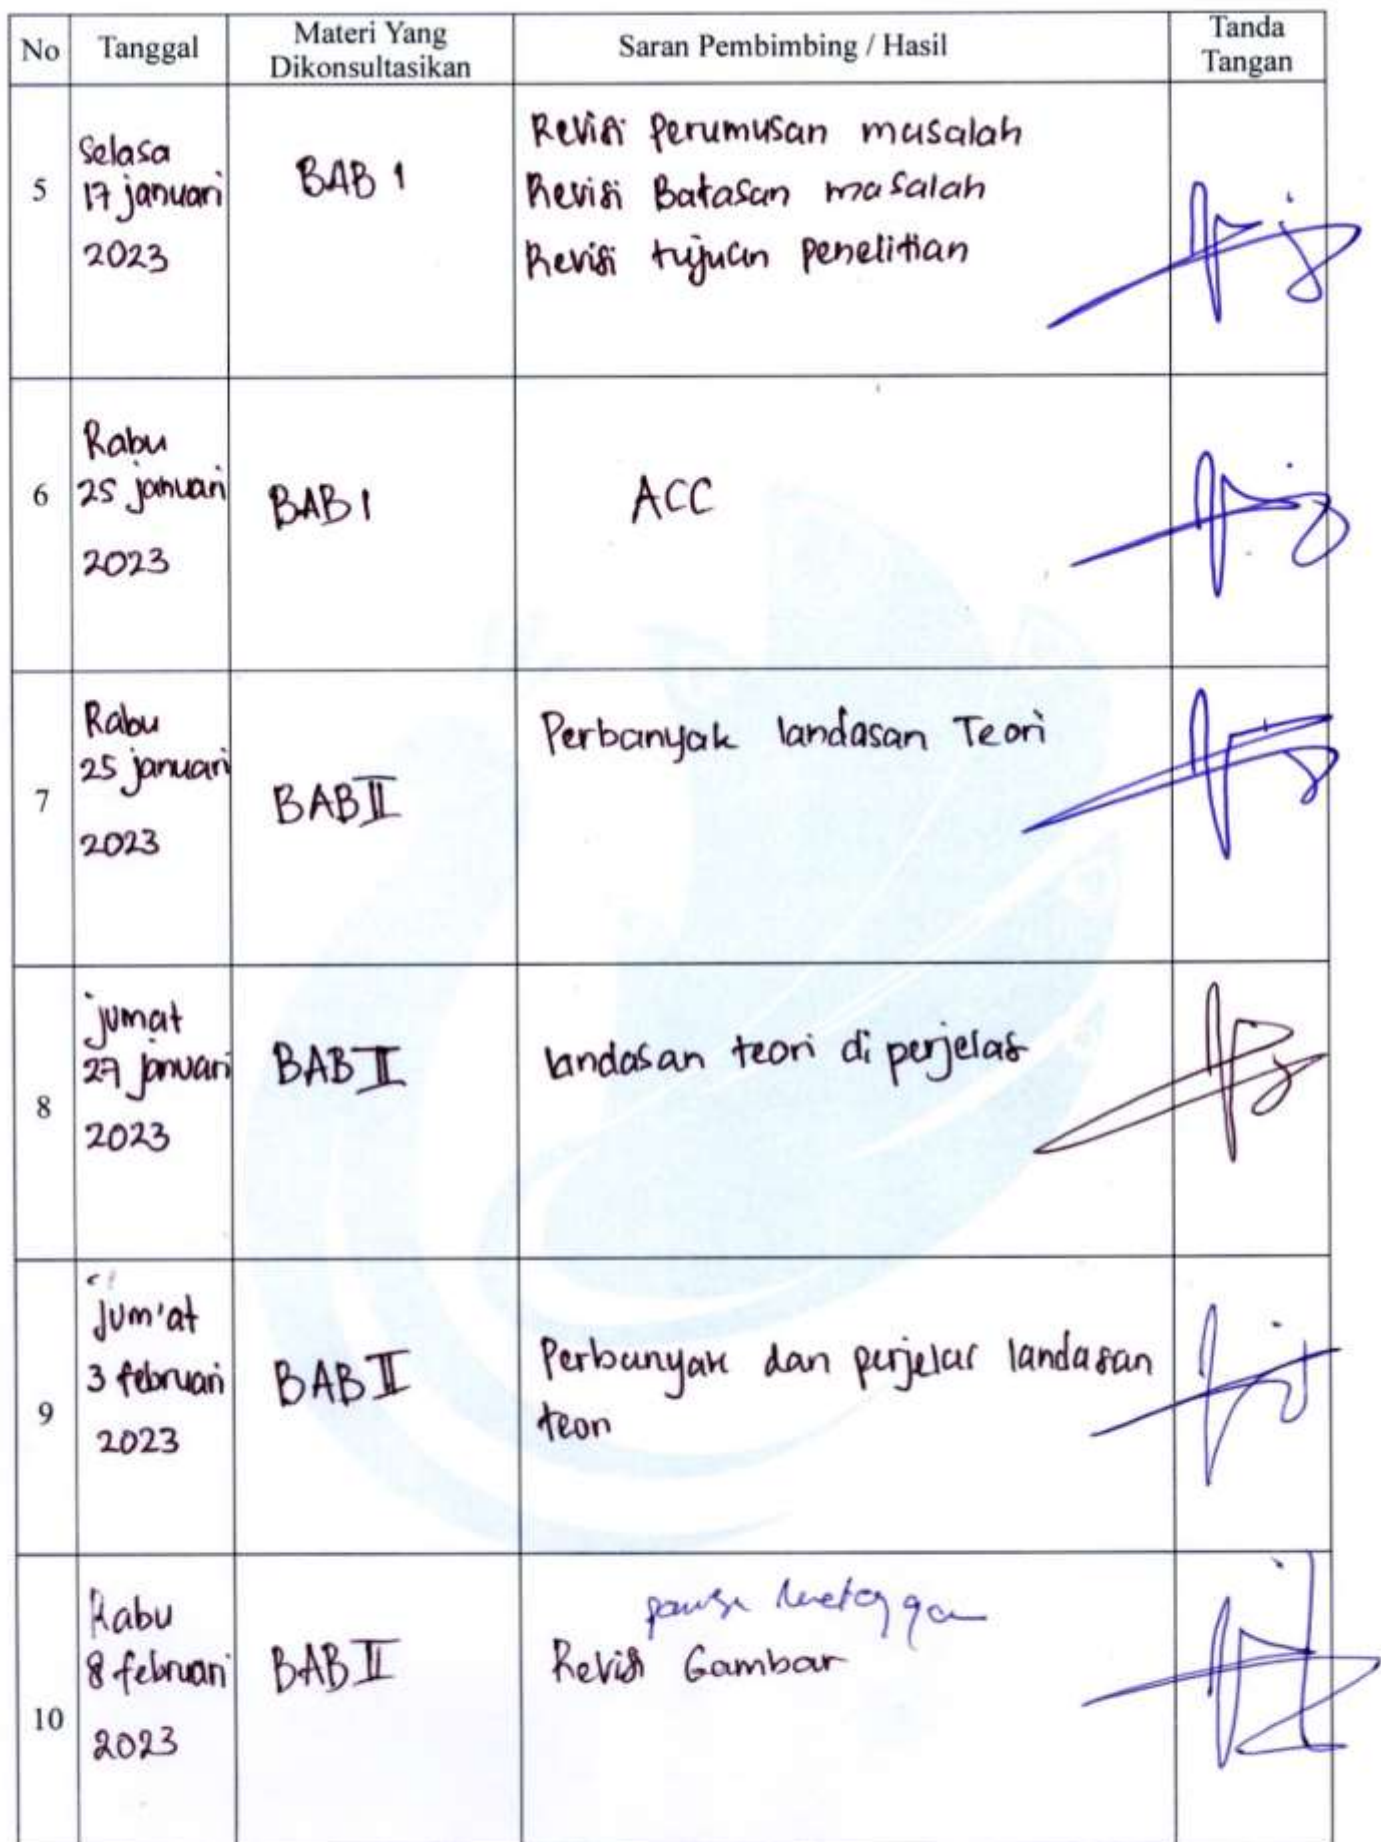 No Tanggal Materi Yang Dikonsultasikan Saran Pembimbing / Hasil Tanda Tangan
5
Selasa
17 januari
2023
BAB 1
Revisi Perumusan masalah
Revisi Batasan masalah
Revisi tujuan penelitian
6
Rabu
25 januari
2023
BAB 1
ACC
7
Rabu
25 januari
2023
BAB II
Perbanyak landasan Teori
8
jumat
27 januari
2023
BAB II
landasan teori di perjelas
9
Jum'at
3 februari
2023
BAB II
Perbanyak dan perjelas landasan
teori
10
Rabu
8 februari
2023
BAB II
Revisi Gambar